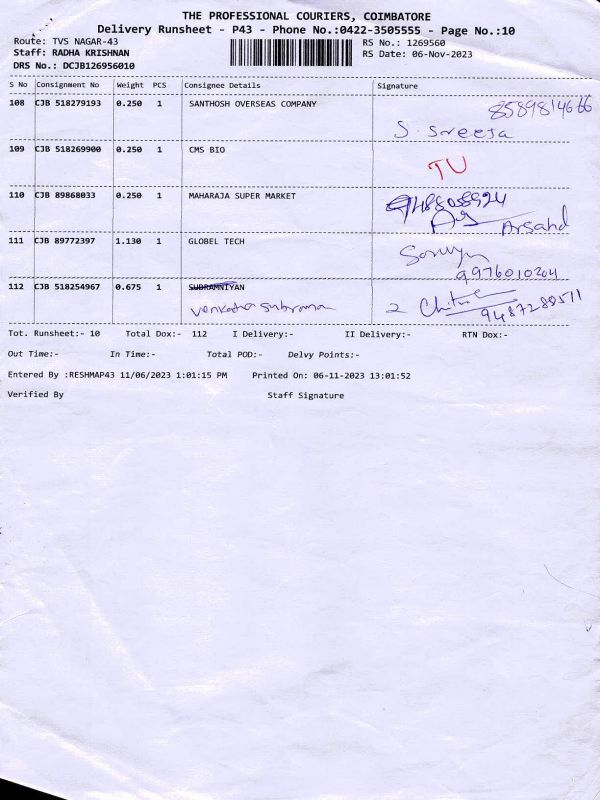 THE PROFESSIONAL COURIERS, COIMBATORE
Delivery Runsheet - P43 - Phone No.:0422-3505555 - Page No.:10
Route: TVS NAGAR-43 RS No.: 1269560
Staff: RADHA KRISHNAN RS Date: 06-Nov-2023
DRS No.: DCJB126956010
S No Consignment No Weight PCS Consignee Details Signature
108 CJB 518279193 0.250 1 SANTHOSH OVERSEAS COMPANY 8589814666
S. Sreeja
109 CJB 518269900 0.250 1 CMS BIO
TU
110 CJB 89868033 0.250 1 MAHARAJA SUPER MARKET
Arsahd
111 CJB 89772397 1.130 1 GLOBEL TECH
9976010204
112 CJB 518254967 0.675 1 SUBRAMNIYAN
9487280511
Tot. Runsheet:- 10 Total Dox:- 112 I Delivery:- II Delivery:- RTN Dox:-
Out Time:- In Time:- Total POD:- Delvy Points:-
Entered By :RESHMAP43 11/06/2023 1:01:15 PM Printed On: 06-11-2023 13:01:52
Verified By Staff Signature